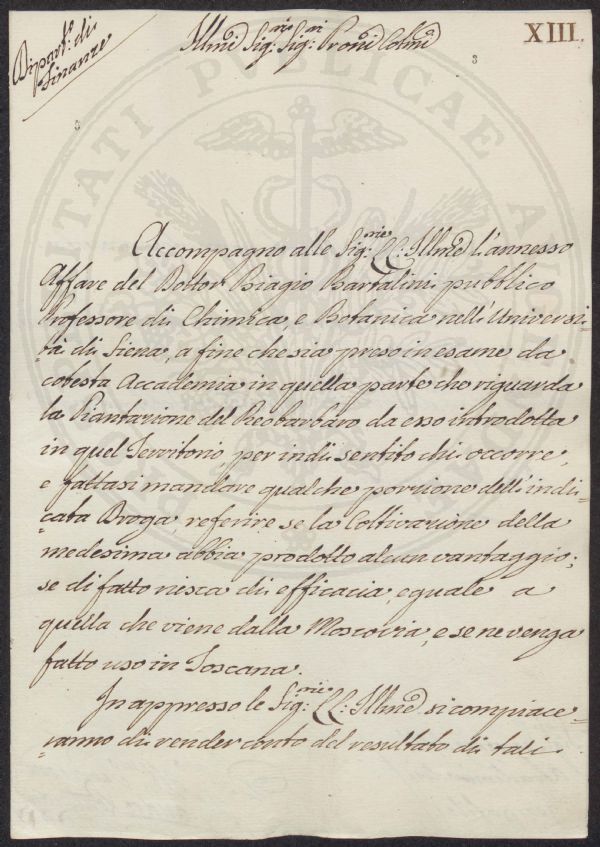 XIII.
Dipart.º di
Finanze
Illmi Sig:rie Sig:ri Proni Colmi
Accompagno alle Sig:rie LL: Illme l'annesso
Affare del Dottor Biagio Bartalini pubblico
Professore di Chimica, e Botanica nell'Universi=
tà di Siena, a fine che sia preso in esame da
cotesta Accademia in quella parte che riguarda
la Piantazione del Reobarbaro da esso introdotta
in quel Territorio, per indi sentito chi occorre,
e fattasi mandare qualche porzione dell'indi=
cata Droga, referire se la Coltivazione della
medesima abbia prodotto alcun vantaggio;
se di fatto riesca di efficacia eguale a
quella che viene dalla Moscovia, e se ne venga
fatto uso in Toscana.
In appresso le Sig:rie LL: Illme si compiace=
ranno di render conto del resultato di tali